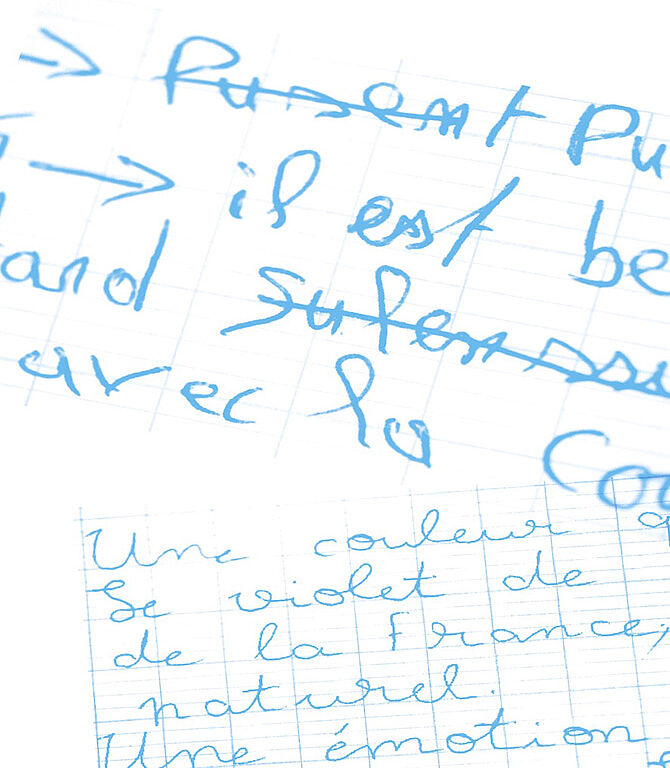 → Pu
→ il est be
and
avec la Cou
Une couleur q
Le violet de
de la France,
naturel.
Une émotion